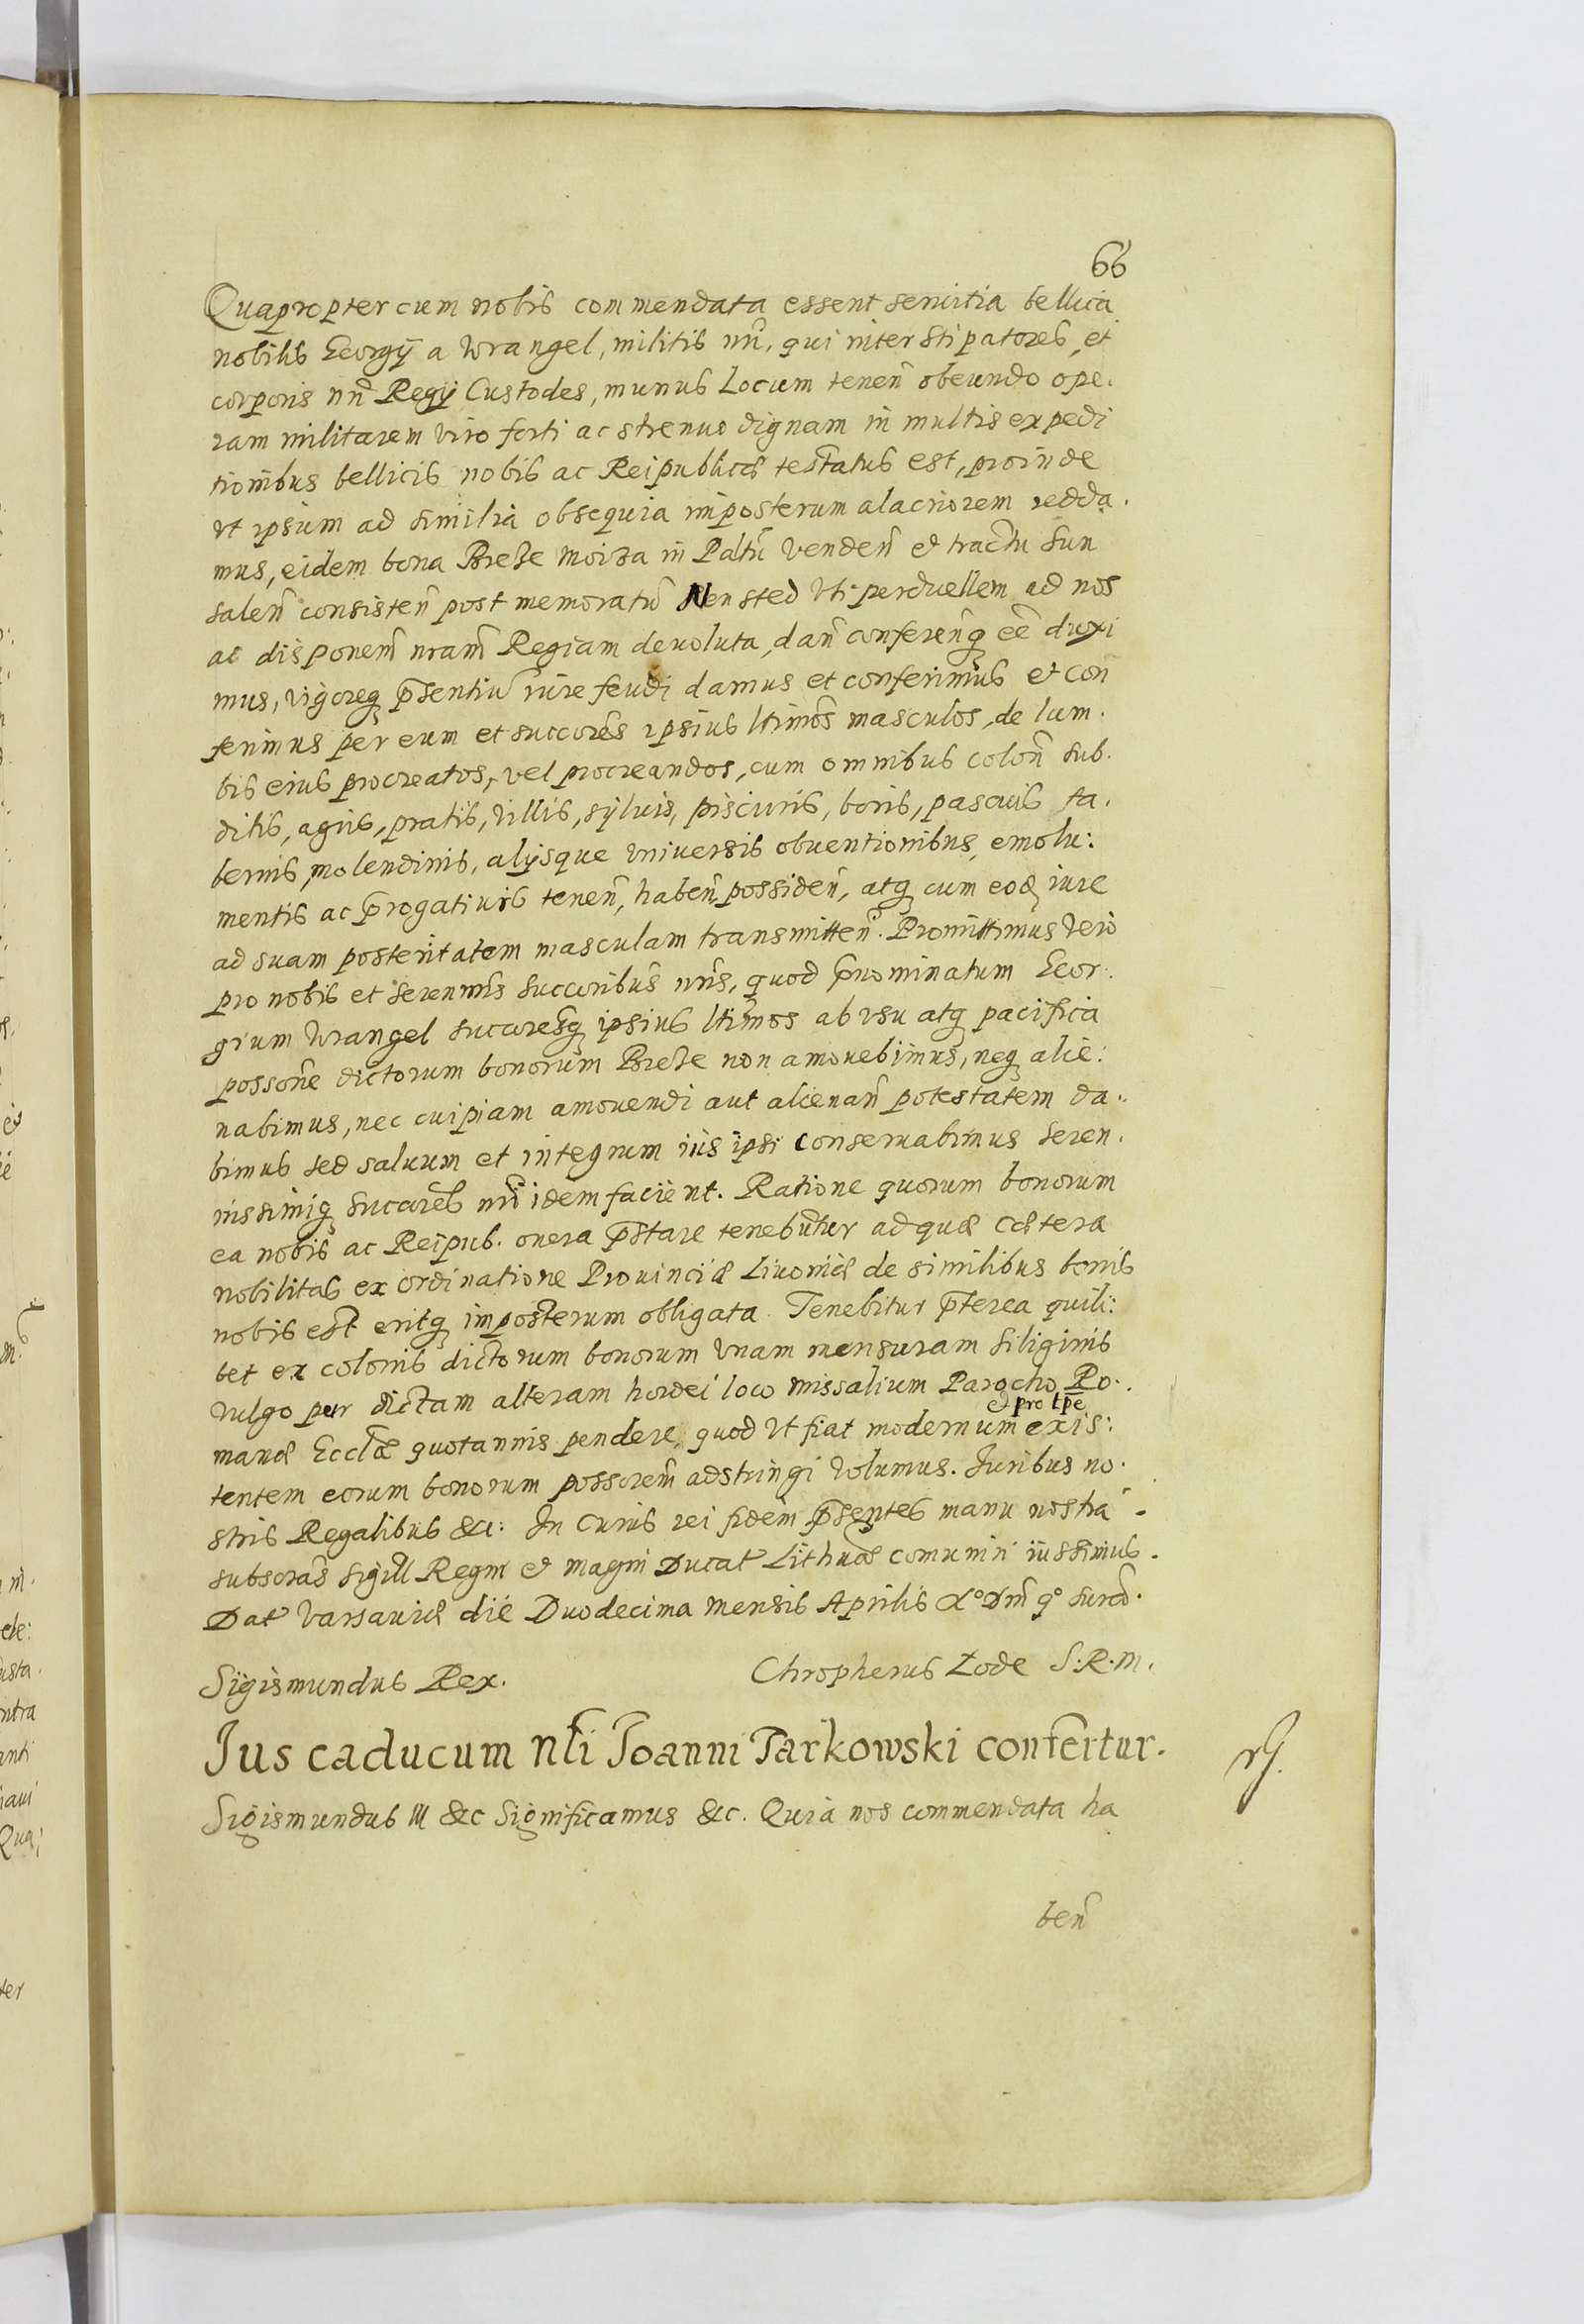 66
Quapropter cum nobis commendata essent seruitia bellica
nobilis Georgÿ a Wrangel, militis nri, qui inter stipatores et
corporis nri Regÿ Custodes, munus Locum tenen obeundo ope.
ram militarem viro forti ac strenuo dignam in multis expedi
tionibus bellicis nobis ac Reipublicæ testatus est, proinde
vt ipsum ad similia obsequia imposterum alacriorem redda.
mus, eidem bona Breze Moiza in Paltu Venden et tractu Sun
salen consisten post memoratu Nensted vti perduellem ad nos
ac disponem nram Regiam deuoluta, dan conferenq eē duxi
mus, vigoreq pñsentiu iure feudi damus et conferimus et con
ferimus per eum et succores ipsius ltimos masculos, de lum.
bis eius procreatos, vel procreandos, cum omnibus colon sub.
ditis, agris, pratis, villis, sÿluis, piscinis, boris, pascuis ta.
bernis, molendinis, alÿsque vniuersis obuentionibus, emolu:
mentis ac progatiuis tenen, haben, possiden, atq cum eod iure
ad suam posteritatem masculam transmitten. Promittimus vero
pro nobis et serenmis succoribus nris, quod prnominatum Geor.
gium Wrangel succoresq ipsius ltimos ab vsu atq pacifica
possone dictorum bonorum Breze non amouebimus, neq alie:
nabimus, nec cuipiam amouendi aut alienan potestatem da..
bimus sed saluum et integrum ius ipsi conseruabimus Seren.
nissimiq succores nri idem facient. Ratione quorum bonorum
ea nobis ac Reipub. onera pstare tenebuntur ad quæ cætera
nobilitas ex ordinatione Prouinciæ Liuoniæ de similibus bonis
nobis est eritq imposterum obligata. Tenebitur pterea quili:
bet ex colonis dictorum bonorum vnam mensuram siliginis
vulgo pur dictam alteram hordei loco missalium Parocho Ro..
et pro tpe
manæ Ecclæ quotannis pendere, quod vt fiat modernum exis:
tentem eorum bonorum possorem adstringi volumus. Iuribus no.
stris Regalibus &c: In cuius rei fidem psentes manu nostra
subscras sigill Regni et magni Ducat Lithuæ comuniri iussimus.
Dat Varsauiæ die Duodecima mensis Aprilis Ao Dni qo supra.
Sigismundus Rex. Chropherus Zode S:R:M.
Jus caducum Nli Joanni Tarkowski confertur.
Sigismundus III &c Significamus &c. Quia nos commendata ha
ben